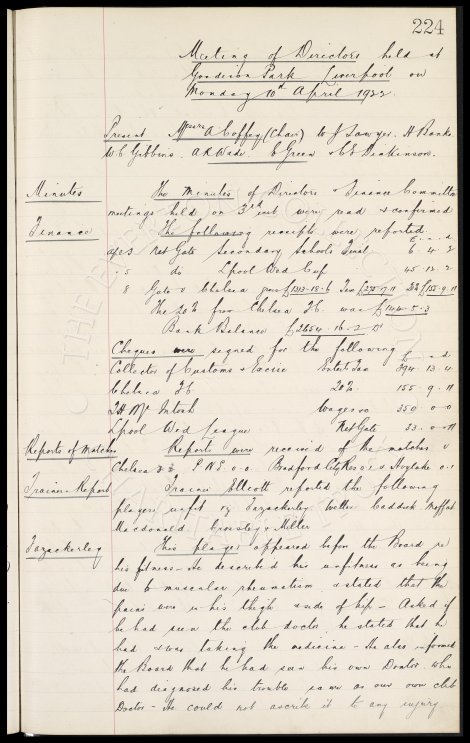 224
Meeting of Directors held at
Goodison Park Liverpool on
Monday 10th April 1922.
Present Messrs A Coffey (Chair) W J Sawyer. H Banks
W C Gibbins. A R Wade. E Green & C E Dickinson.
Minutes The minutes of Directors & Finance Committee
meetings held on 3rd inst were read & confirmed
Finance The following receipts were reported.
£ s d
Apl 3 Net Gate Secondary Schools Final 6. 4. 3
" 5 do Lpool Wed Cup 45. 12. 2
8 Gate v Chelsea gross £1313-18-6 Tax 20% £155-9-11
The 20% from Chelsea F.C. was £144-5-3
Bank Balance £2654-16-2
Cheques were signed for the following £ s d
Collector of Customs & Excise Entert Tax 394. 13. 4
Chelsea F.C. 20% 155. 9. 11
T H McIntosh Wages &c 350. 0. 0
Lpool Wed League Net Gate 33. 0. 11
Reports of Matches Reports were received of the matches v
Chelsea P.N.E. 0.0 Bradford City Res & Hoylake
Trainers Report Trainer Elliott reported the following
players unfit eg Fazackerley Weller Caddick Moffat
Macdonald Grimsley & Miller
Fazackerley This player appeared before the Board re
his fitness - He described his unfitness as being
due to muscular rheumatism & stated that the
pains were in his thigh & side of hip - Asked if
he had seen the club doctor he stated that he
had & was taking the medicine - He also informed
the Board that he had seen his own Doctor who
had diagnosed his trouble same as our own club
Doctor - He could not ascribe it to any injury